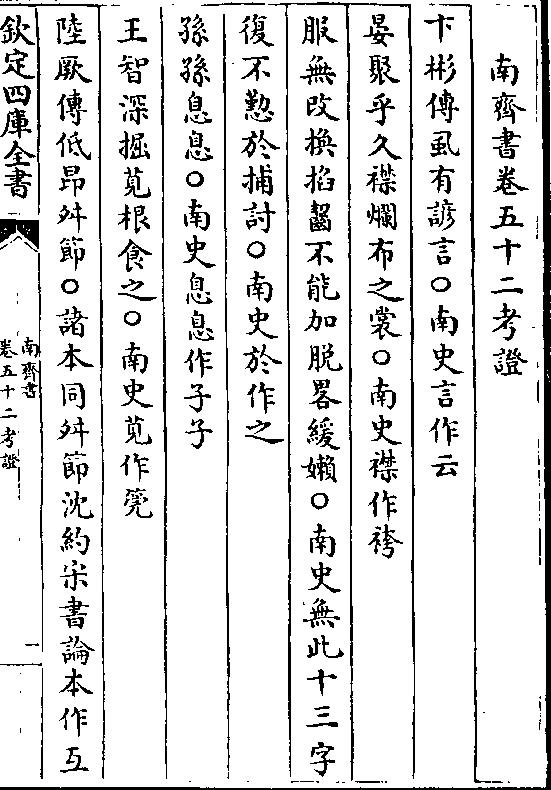 南齊書卷五十二考證
卞彬傳虱有諺言○南史言作云
晏聚乎久襟爛布之裳○南史襟作袴
服無改換掐齧不能加脱畧緩嬾○南史無此十三字
復不懃於捕討○南史於作之
孫孫息息○南史息息作子子
王智深掘莧根食之○南史莧作䓘
陸厥傳低昂舛節○諸本同舛節沈約宋書論本作互
欽定四庫全書
南齊書
卷五十二考證
一